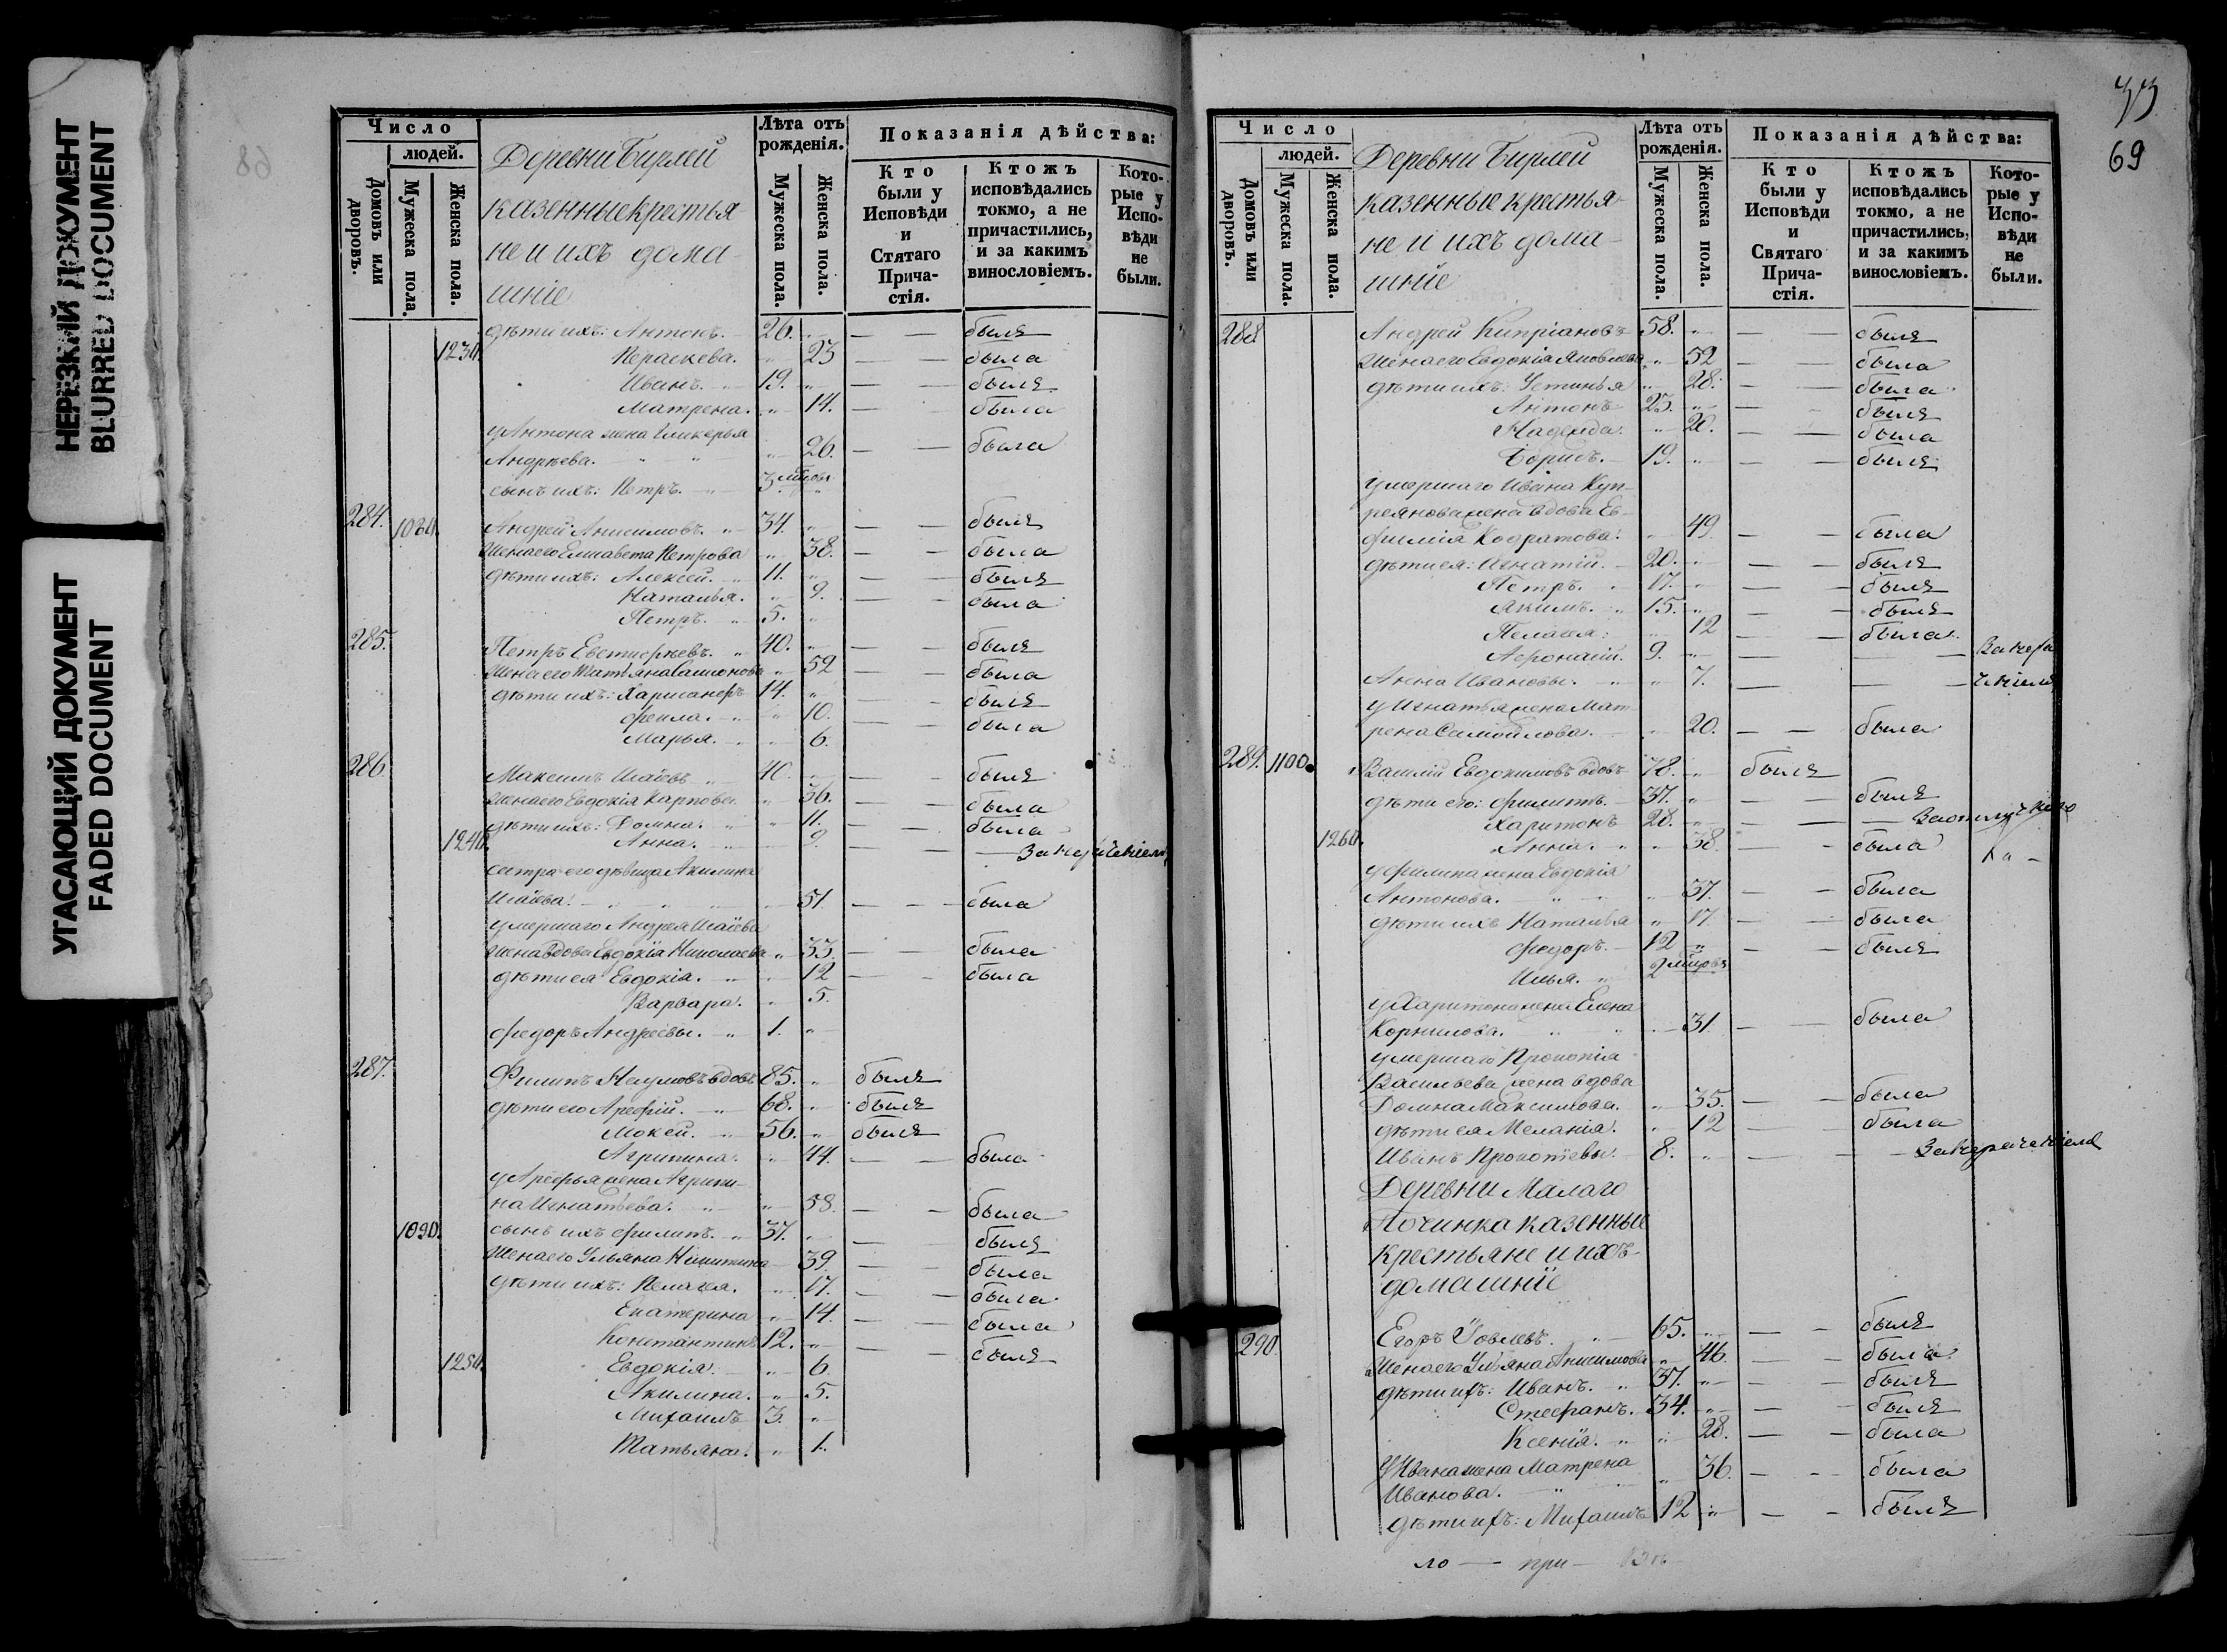 НЕРЕЗКИЙ ДОКУМЕНТ
BLURRED DOCUMENT
УГАСАЮЩИЙ ДОКУМЕНТ
FADED DOCUMENT
68
Число
людей.
Домовъ или дворовъ.
Мужеска пола.
Женска пола.
Деревни Бирлей
казенные крестья-
не и ихъ дома-
шніе
Лѣта отъ рожденія.
Мужеска пола.
Женска пола.
Показанія дѣйства:
Кто были у Исповѣди и Стятаго Прича-стія.
Ктожъ исповѣдались токмо, а не причастились, и за какимъ винословіемъ.
Кото-рые у Испо-вѣди не были.
дѣти ихъ: Антонъ. 26. — — былъ
1230. Параскева. 23 — — была
Иванъ. 19. — — былъ
Матрена. 14. — — была
у Антона жена Гликерья
Андрѣева. 26. — — была
сынъ ихъ: Петръ. 3 мѣсцовъ
284. 1080. Андрей Анисимовъ. 34. — — былъ
Жена его Елисавета Петрова 38. — — была
дѣти ихъ: Алексѣй. 11. — — былъ
Наталья. 9. — — была
Петръ. 5.
285. Петръ Евстифѣевъ. 40. — — былъ
Жена его Татьяна 52 — — была
дѣти ихъ: 14. — — былъ
Фекла. 10. — — была
Марья. 6.
286. Максимъ Исаіевъ 40. — — былъ
Жена его Евдокія Карпова. 36. — — была
дѣти ихъ: Домна. 11. — — была
1240. Анна. 9. — — За нераченіемъ
сестра его дѣвица Акилина
Исаіева. 51. — — была
умершаго Андрея Исаіева
Жена вдова Евдокія Николаева 33. — — была
дѣти ея Евдокія. 12 — — была
Варвара. 5.
Федоръ Андреевы. 1.
287. Филипъ Наумовъ вдовъ 85. былъ
дѣти его Арефій. 68. былъ
Мокей. 56. былъ
Агрипина. 44. — — была
у Арефья жена Агрипи-
на Игнатьева. 58. — — была
1090. сынъ ихъ Филипъ. 37. — былъ
Жена его Ульяна Никитина 39. — — была
дѣти ихъ: Пелагея. 17. — — была
Екатерина 14. — — была
Константинъ 12. — — былъ
1250. Евдокія. 6.
Акилина. 5.
Михаилъ 3.
Татьяна. 1.
69
Число
людей.
Домовъ или дворовъ.
Мужеска пола.
Женска пола.
Деревни Бирлей
казенные крестья-
не и ихъ дома-
шніе
Лѣта отъ рожденія.
Мужеска пола.
Женска пола.
Показанія дѣйства:
Кто были у Исповѣди и Святаго Прича-стія.
Ктожъ исповѣдались токмо, а не причастились, и за какимъ винословіемъ.
Кото-рые у Испо-вѣди не были.
288. Андрей Кипріановъ 58. — — былъ
Жена его Евдокія Яковлева 52 — — была
дѣти ихъ: Устинья 28. — — была
Антонъ 23. — — былъ
Надежда. 20. — — была
Борисъ. 19. — — былъ
Умершаго Ивана Куп-
реянова жена вдова Ев-
фимія Кодратова. 49. — — была
дѣти ея: Игнатій. 20. — — былъ
Петръ. 17. — — былъ
Якимъ. 15. — — былъ
Пелагея: 12 — — была
Афонасій. 9. — — — За нера
Анна Ивановы. 7. — — — ченіемъ
у Игнатья жена Мат-
рена Самойлова. 20. — — была
289. 1100. Василій Евдокимовъ вдовъ 78. былъ
дѣти его: Филипъ. 37. — — былъ
Харитонъ 28. — — — За отлучкою
1260. Анна. 38. — — была
у Филипа жена Евдокія
Антонова. 37. — — была
дѣти ихъ Наталья 17. — — была
Федоръ. 12 — — былъ
Илья. 2 мѣсцовъ
у Харитона жена Елена
Корнилова. 31. — — была
умершаго Прокопія
Васильева жена вдова
Домна Максимова. 35. — — была
дѣти ея Меланія. 12 — — была
Иванъ Прокопіевы. 8. — — — За нераченіемъ
Деревни Малаго
Починка казенные
крестьяне и ихъ
домашніе
290. Егоръ Іовлевъ. 65. — — былъ
Жена его Ульяна Анисимова 46. — — была
дѣти ихъ: Иванъ. 37. — — былъ
Стефанъ. 34. — — былъ
Ксенія. 28. — — была
У Ивана жена Матрена
Иванова. 36. — — была
дѣти ихъ: Михаилъ 12 — — былъ
ло — при —